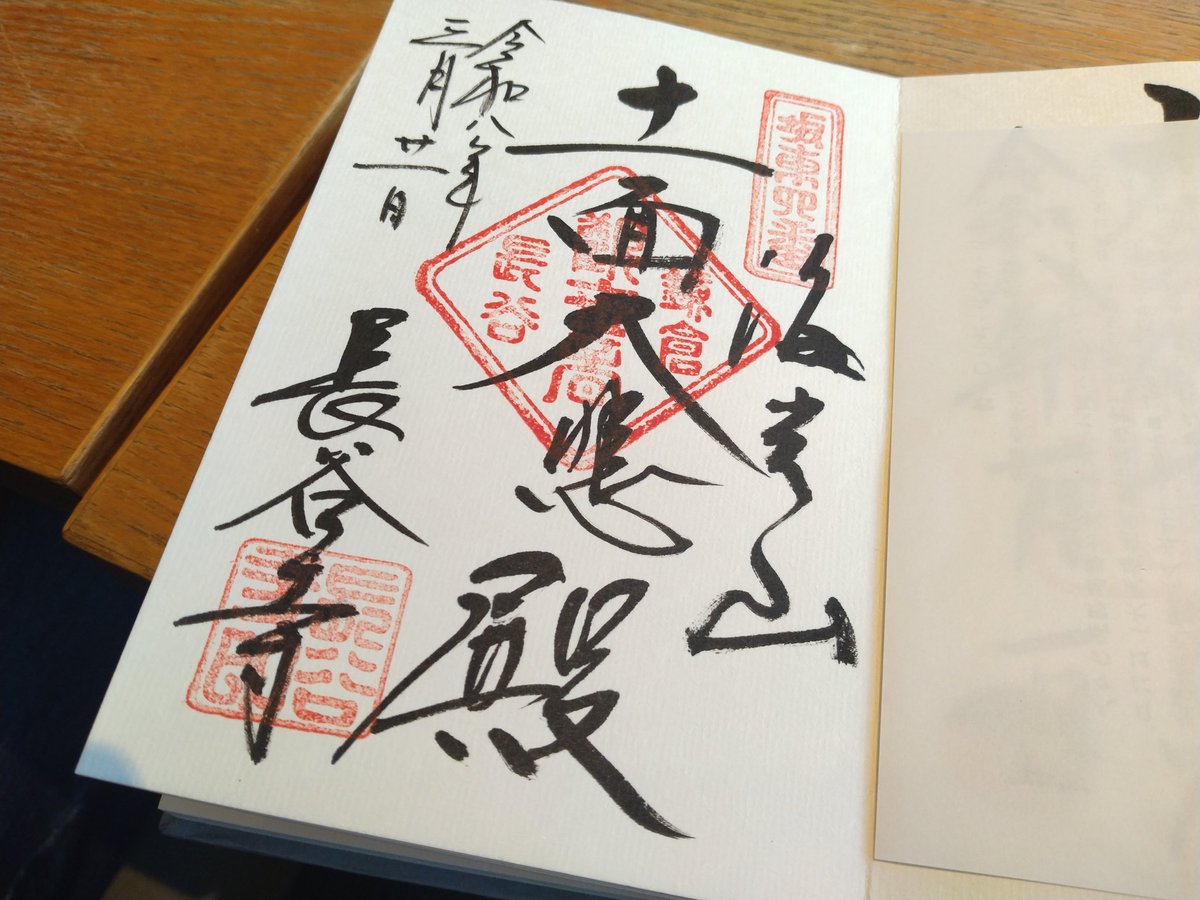 坂東四番
海光山
十一面大悲殿
鎌倉
長谷
令和八年
三月廿一日
長谷寺